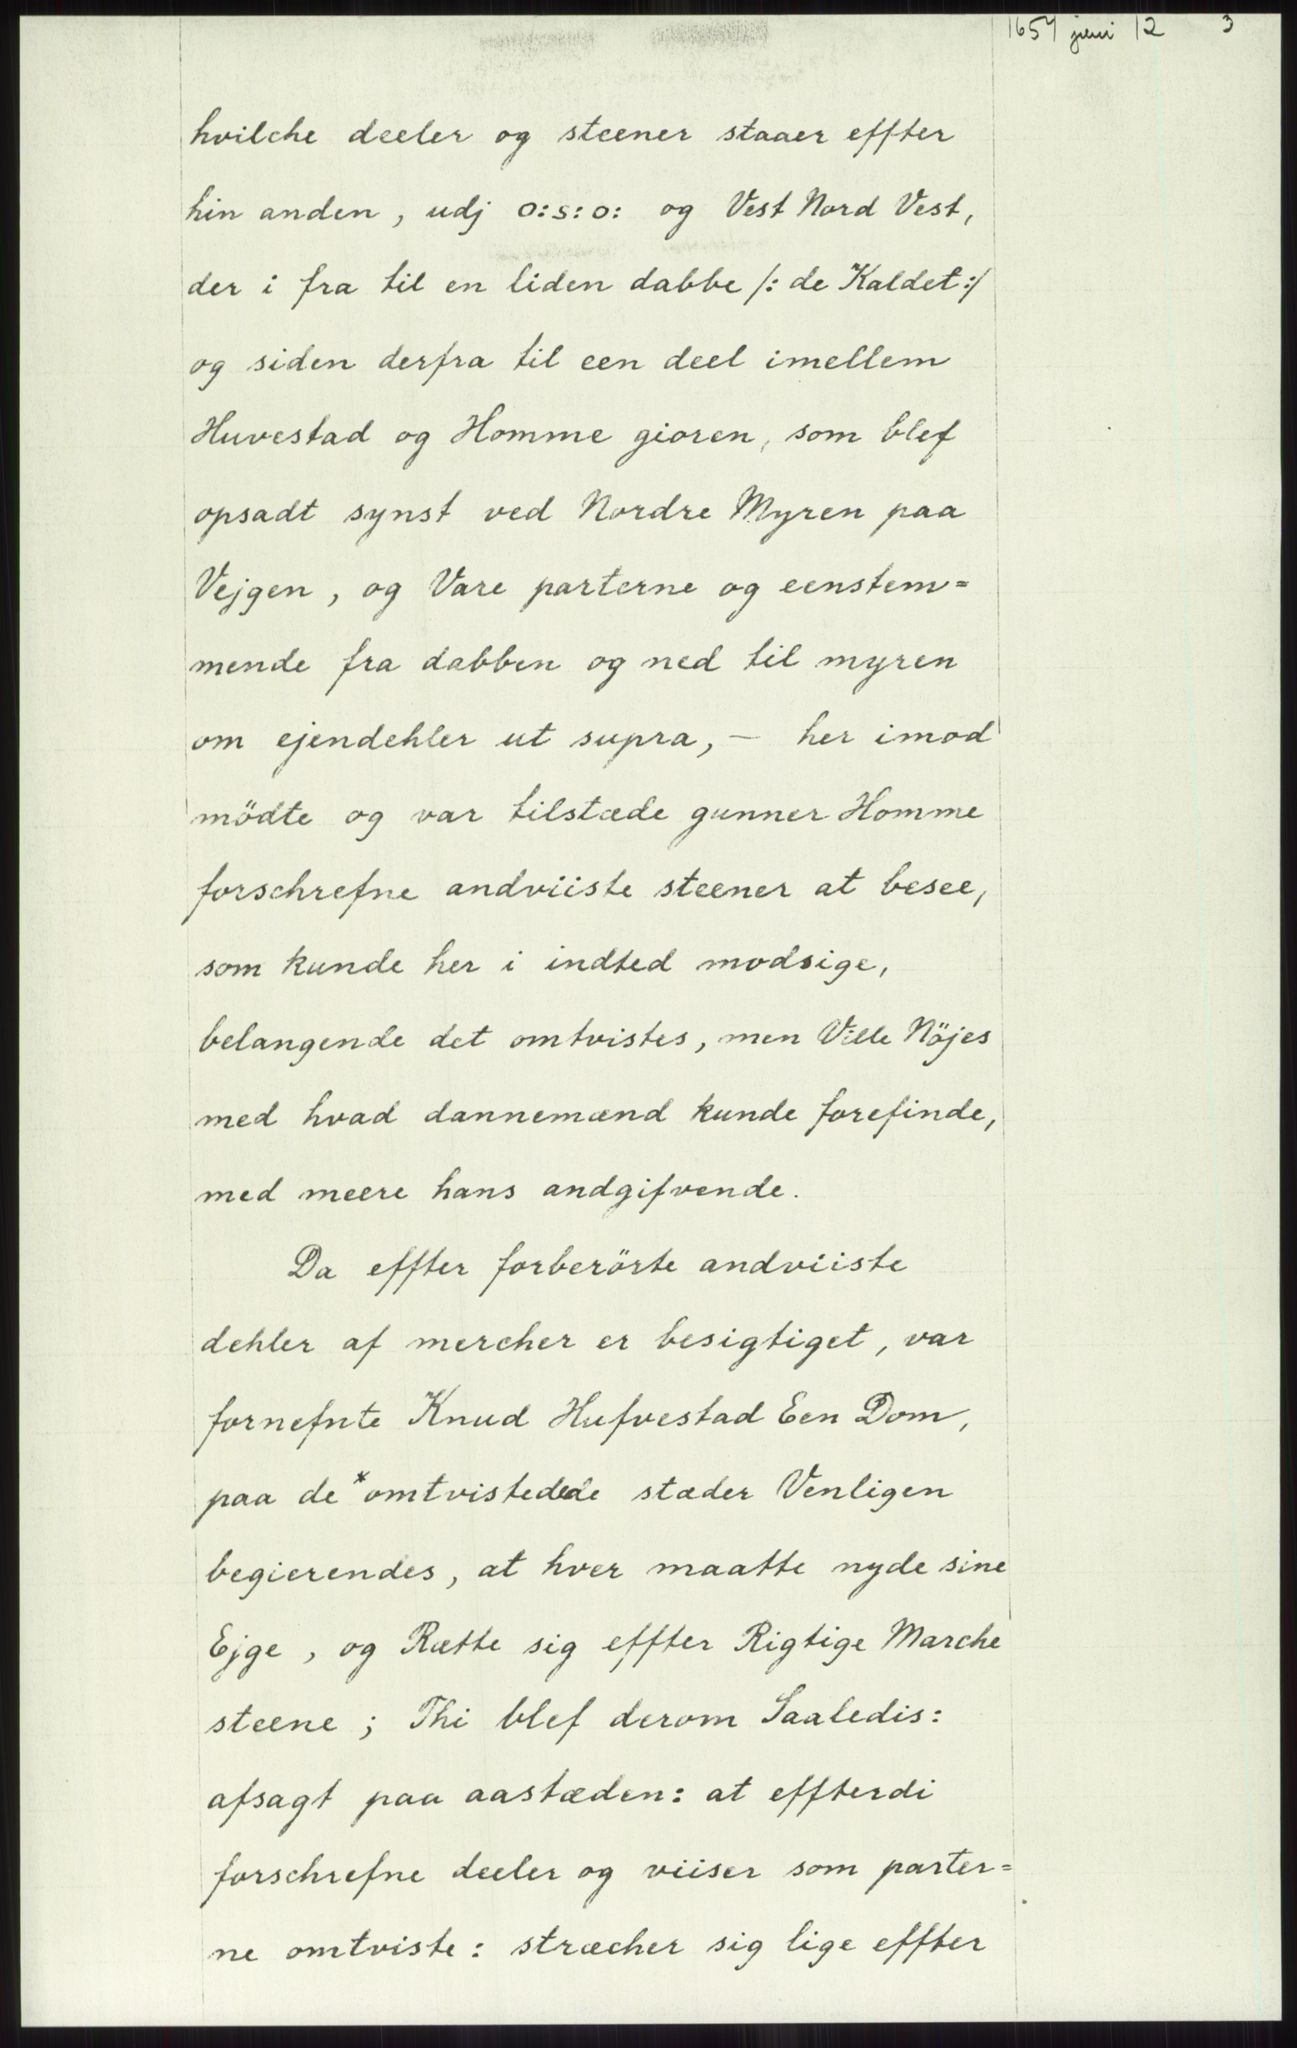 1657 juni 12 3
hvilche deeler og steener staaer effter
hin anden, udj o:s:o: og Vest Nord Vest,
der i fra til en liden dabbe /: de Kaldet :/
og siden derfra til een deel imellem
Huvestad og Homme gioren, som blef
opsadt synst ved Nordre Myren paa
Vejgen, og Vare parterne og eenstem=
mende fra dabben og ned til myren
om ejendehler ut supra, - her imod
mödte og var tilstæde gunner Homme
forschrefne andviiste steener at besee,
som kunde her i indted modsige,
belangende det omtvistes, men Ville Nöjes
med hvad dannemænd kunde forefinde,
med meere hans andgifvende.
Da effter forberörte andviiste
dehler af mercher er besigtiget, var
fornefnte Knud Hufvestad Een Dom,
paa de *omtvistedede stæder Venligen
begierendes, at hver maatte nyde sine
Ejge, og Rætte sig effter Rigtige Marche
steene; Thi blef derom Saaledis:
afsagt paa aastæden: at effterdi
forschrefne deeler og viiser som parter=
ne omtviste: stræcher sig lige effter